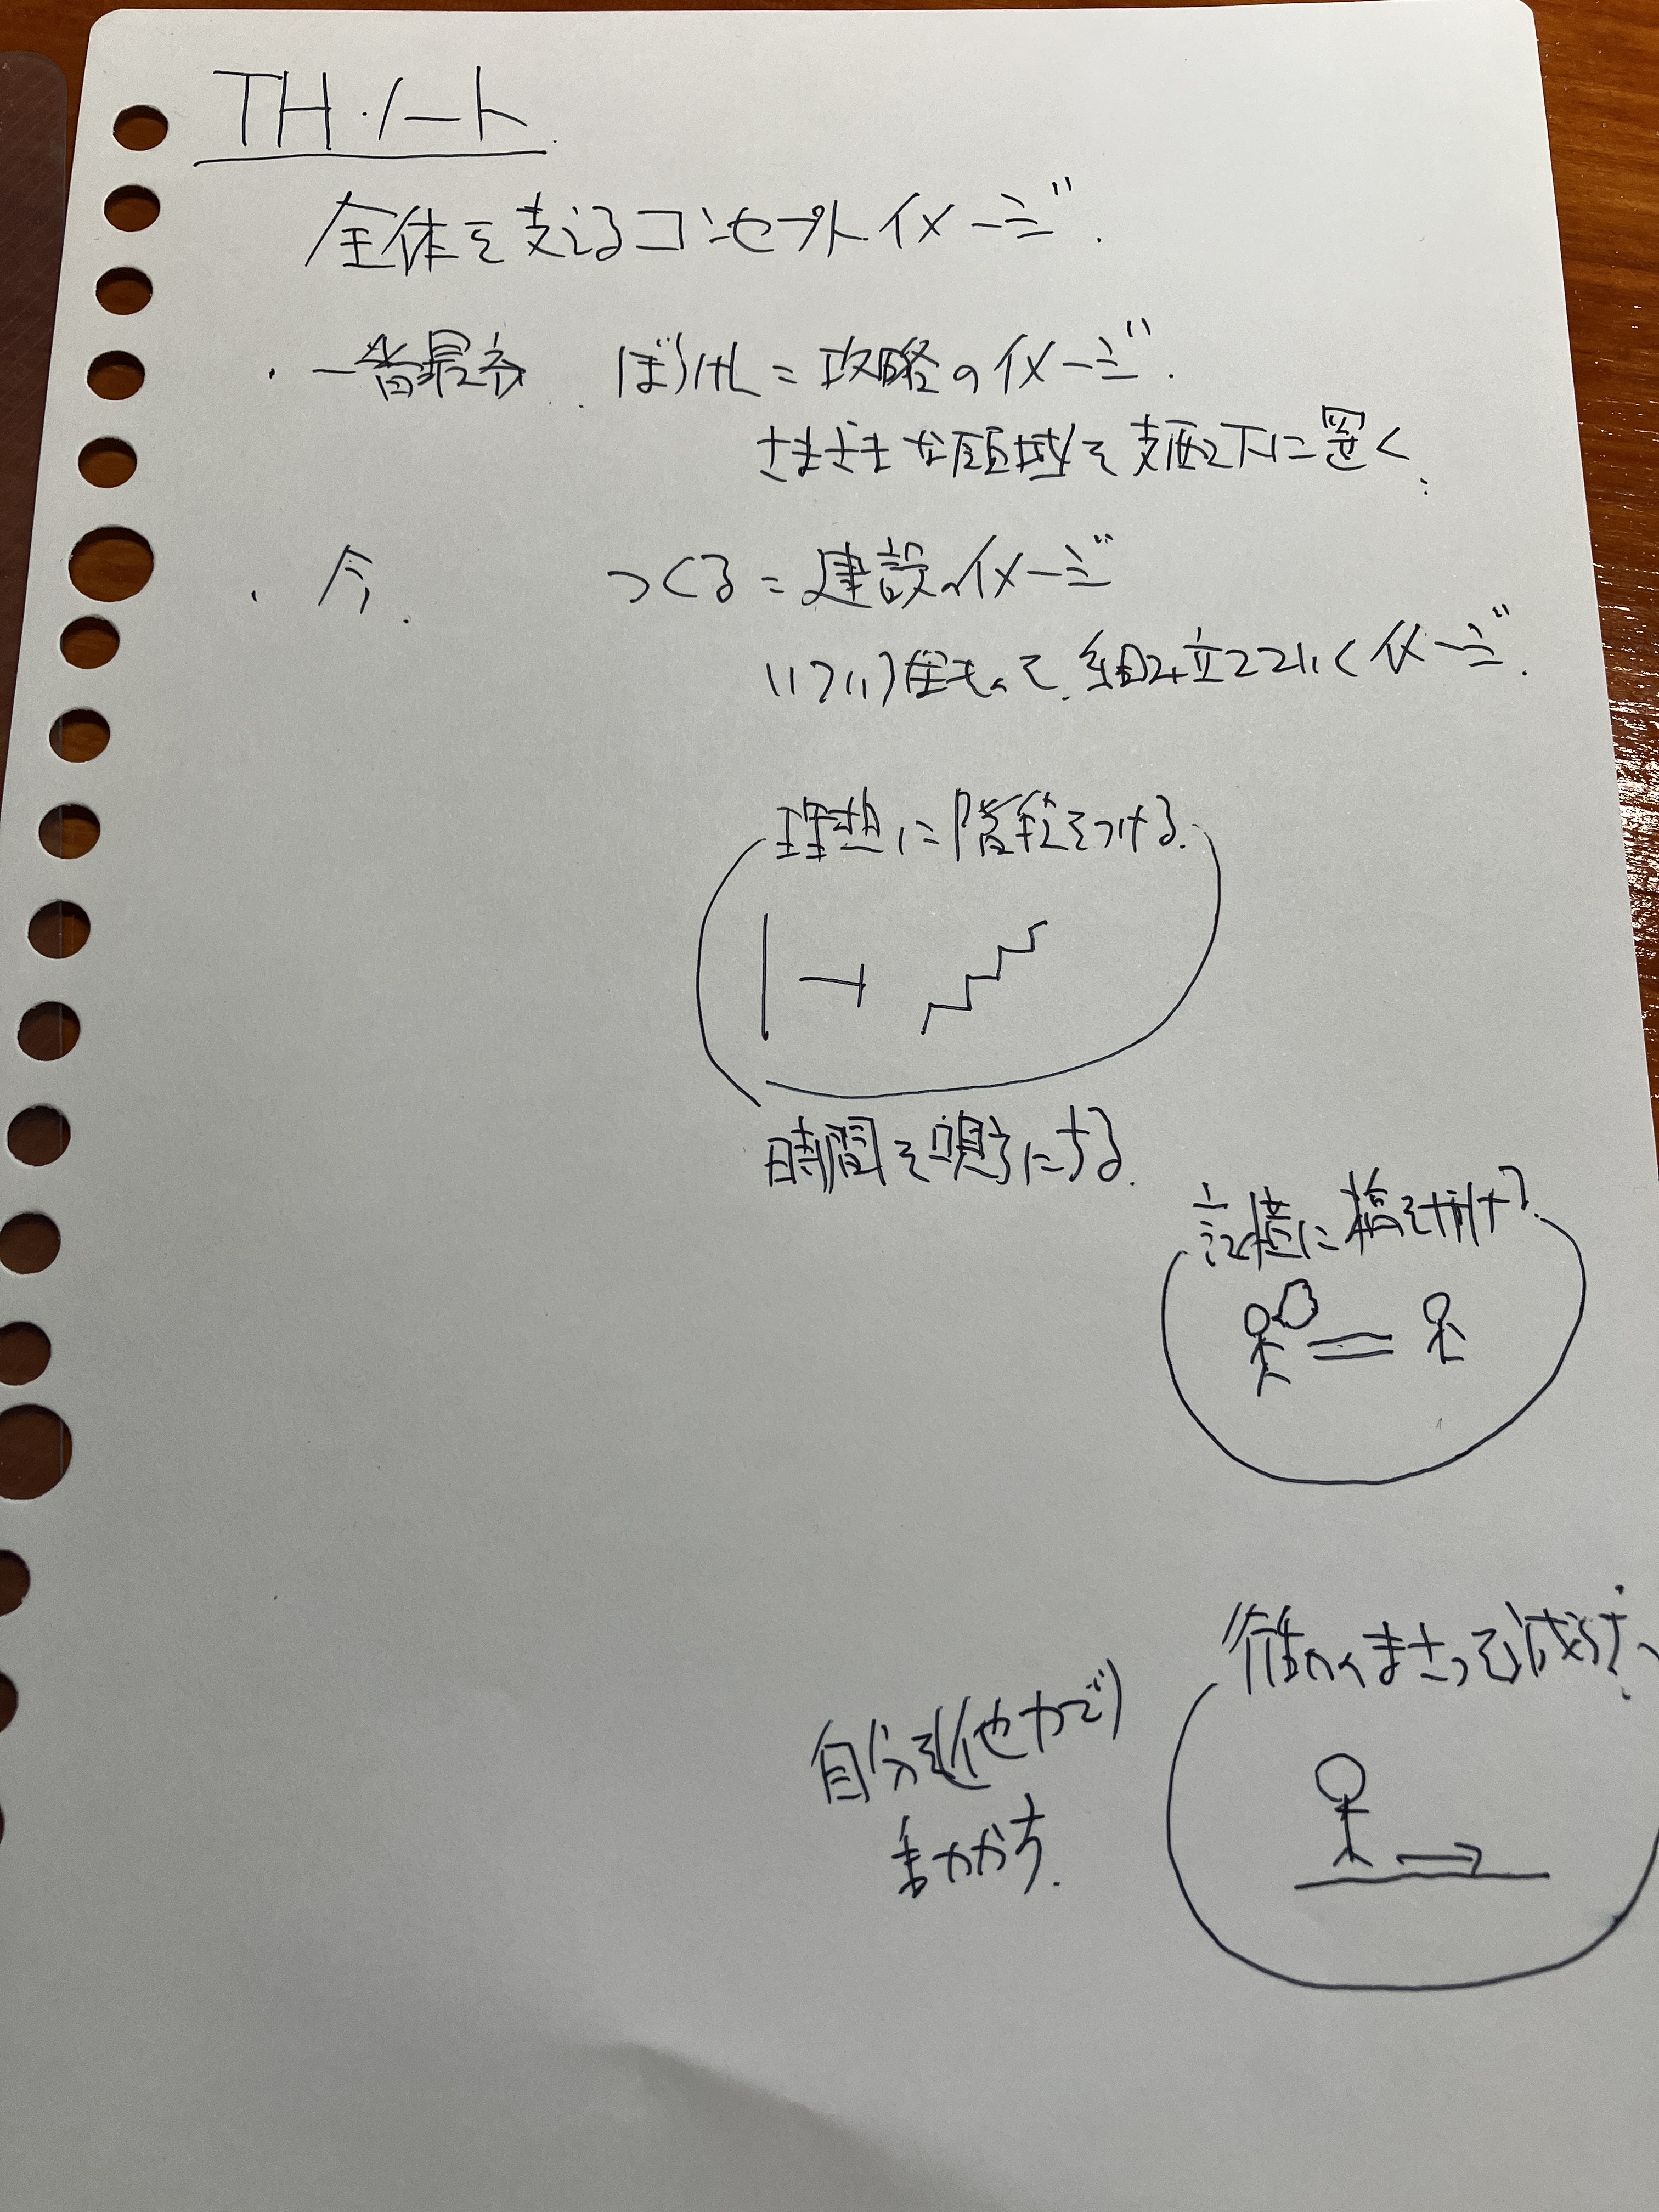 TH・ノート
全体を支えるコンセプトイメージ.
・一番最初 ぼうけん=攻略のイメージ.
さまざまな領域を支配下に置く
・今. つくる=建設のイメージ
いろいろ使って、組み立てていくイメージ.
理想に階段をつける.
時間を味方にする.
記憶に橋を付け
自分を(他力で)
まかす.